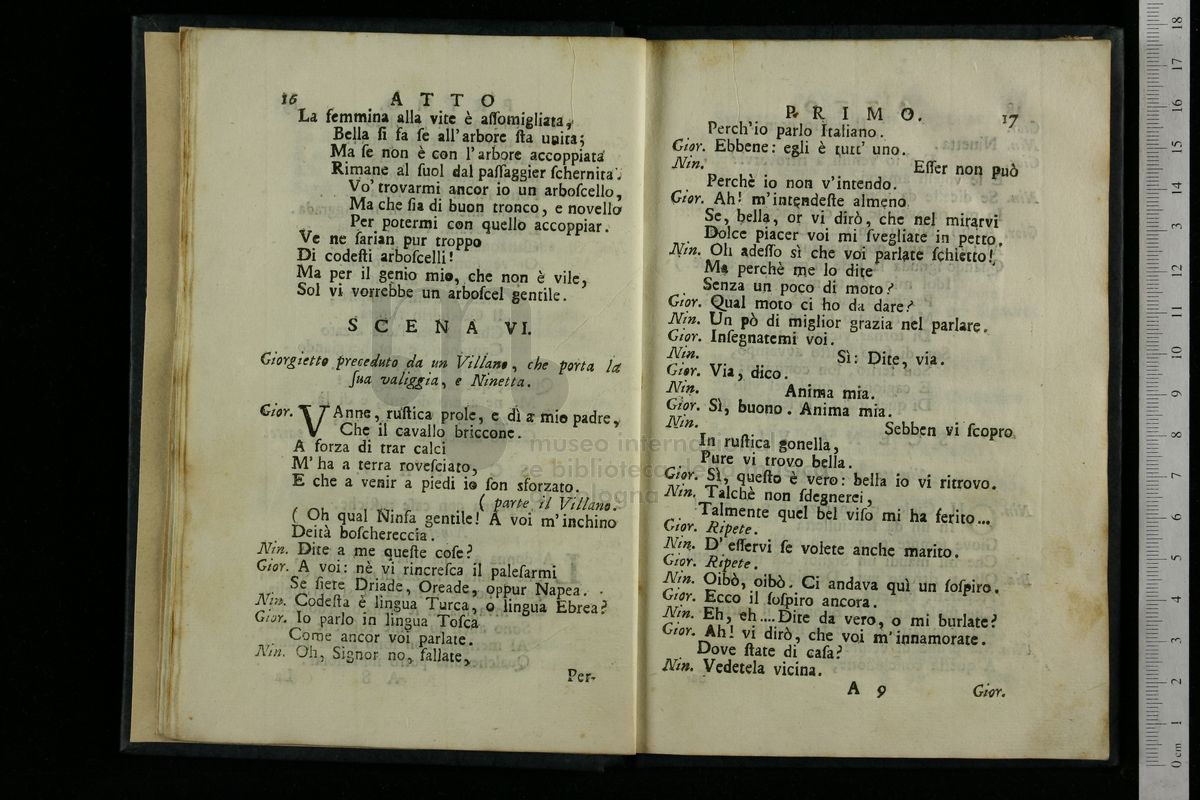 16 ATTO
La femmina alla vite è aſſomigliata,
Bella ſi fa ſe all'arbore ſta unita;
Ma ſe non è con l'arbore accoppiata
Rimane al ſuol dal paſſaggier ſchernita.
Vo' trovarmi ancor io un arboſcello,
Ma che ſia di buon tronco, e novello
Per potermi con quello accoppiar.
Ve ne ſarian pur troppo
Di codeſti arboſcelli!
Ma per il genio mio, che non è vile,
Sol vi vorrebbe un arboſcel gentile.
SCENA VI.
Giorgietto preceduto da un Villano, che porta la
ſua valiggia, e Ninetta.
Gior. VAnne, ruſtica prole, e dì a mio padre,
Che il cavallo briccone.
A forza di trar calci
M'ha a terra roveſciato,
E che a venir a piedi io ſon sforzato.
( parte il Villano.
( Oh qual Ninfa gentile! A voi m'inchino
Deità boſchereccia.
Nin. Dite a me queſte coſe?
Gior. A voi: nè vi rincreſca il paleſarmi
Se ſiete Driade, Oreade, oppur Napea.
Nin. Codeſta è lingua Turca, o lingua Ebrea?
Gior. Io parlo in lingua Toſca
Come ancor voi parlate.
Nin. Oh, Signor no, fallate,
Per-
PRIMO. 17
Perch'io parlo Italiano.
Gior. Ebbene: egli è tutt' uno.
Nin. Eſſer non può
Perchè io non v'intendo.
Gior. Ah! m'intendeſte almeno
Se, bella, or vi dirò, che nel mirarvi
Dolce piacer voi mi ſvegliate in petto.
Nin. Oh adeſſo sì che voi parlate ſchietto!
Ma perchè me lo dite
Senza un poco di moto?
Gior. Qual moto ci ho da dare?
Nin. Un pò di miglior grazia nel parlare.
Gior. Inſegnatemi voi.
Nin. Sì: Dite, via.
Gior. Via, dico.
Nin. Anima mia.
Gior. Sì, buono. Anima mia.
Nin. Sebben vi ſcopro
In ruſtica gonella,
Pure vi trovo bella.
Gior. Sì, queſto è vero: bella io vi ritrovo.
Nin. Talchè non ſdegnerei,
Talmente quel bel viſo mi ha ferito...
Gior. Ripete.
Nin. D'eſſervi ſe volete anche marito.
Gior. Ripete.
Nin. Oibò, oibò. Ci andava quì un ſoſpiro.
Gior. Ecco il ſoſpiro ancora.
Nin. Eh, eh.... Dite da vero, o mi burlate?
Gior. Ah! vi dirò, che voi m'innamorate.
Dove ſtate di caſa?
Nin. Vedetela vicina.
A 9 Gior.
museo interna
e biblioteca della
bologna
0 cm 1 2 3 4 5 6 7 8 9 10 11 12 13 14 15 16 17 18